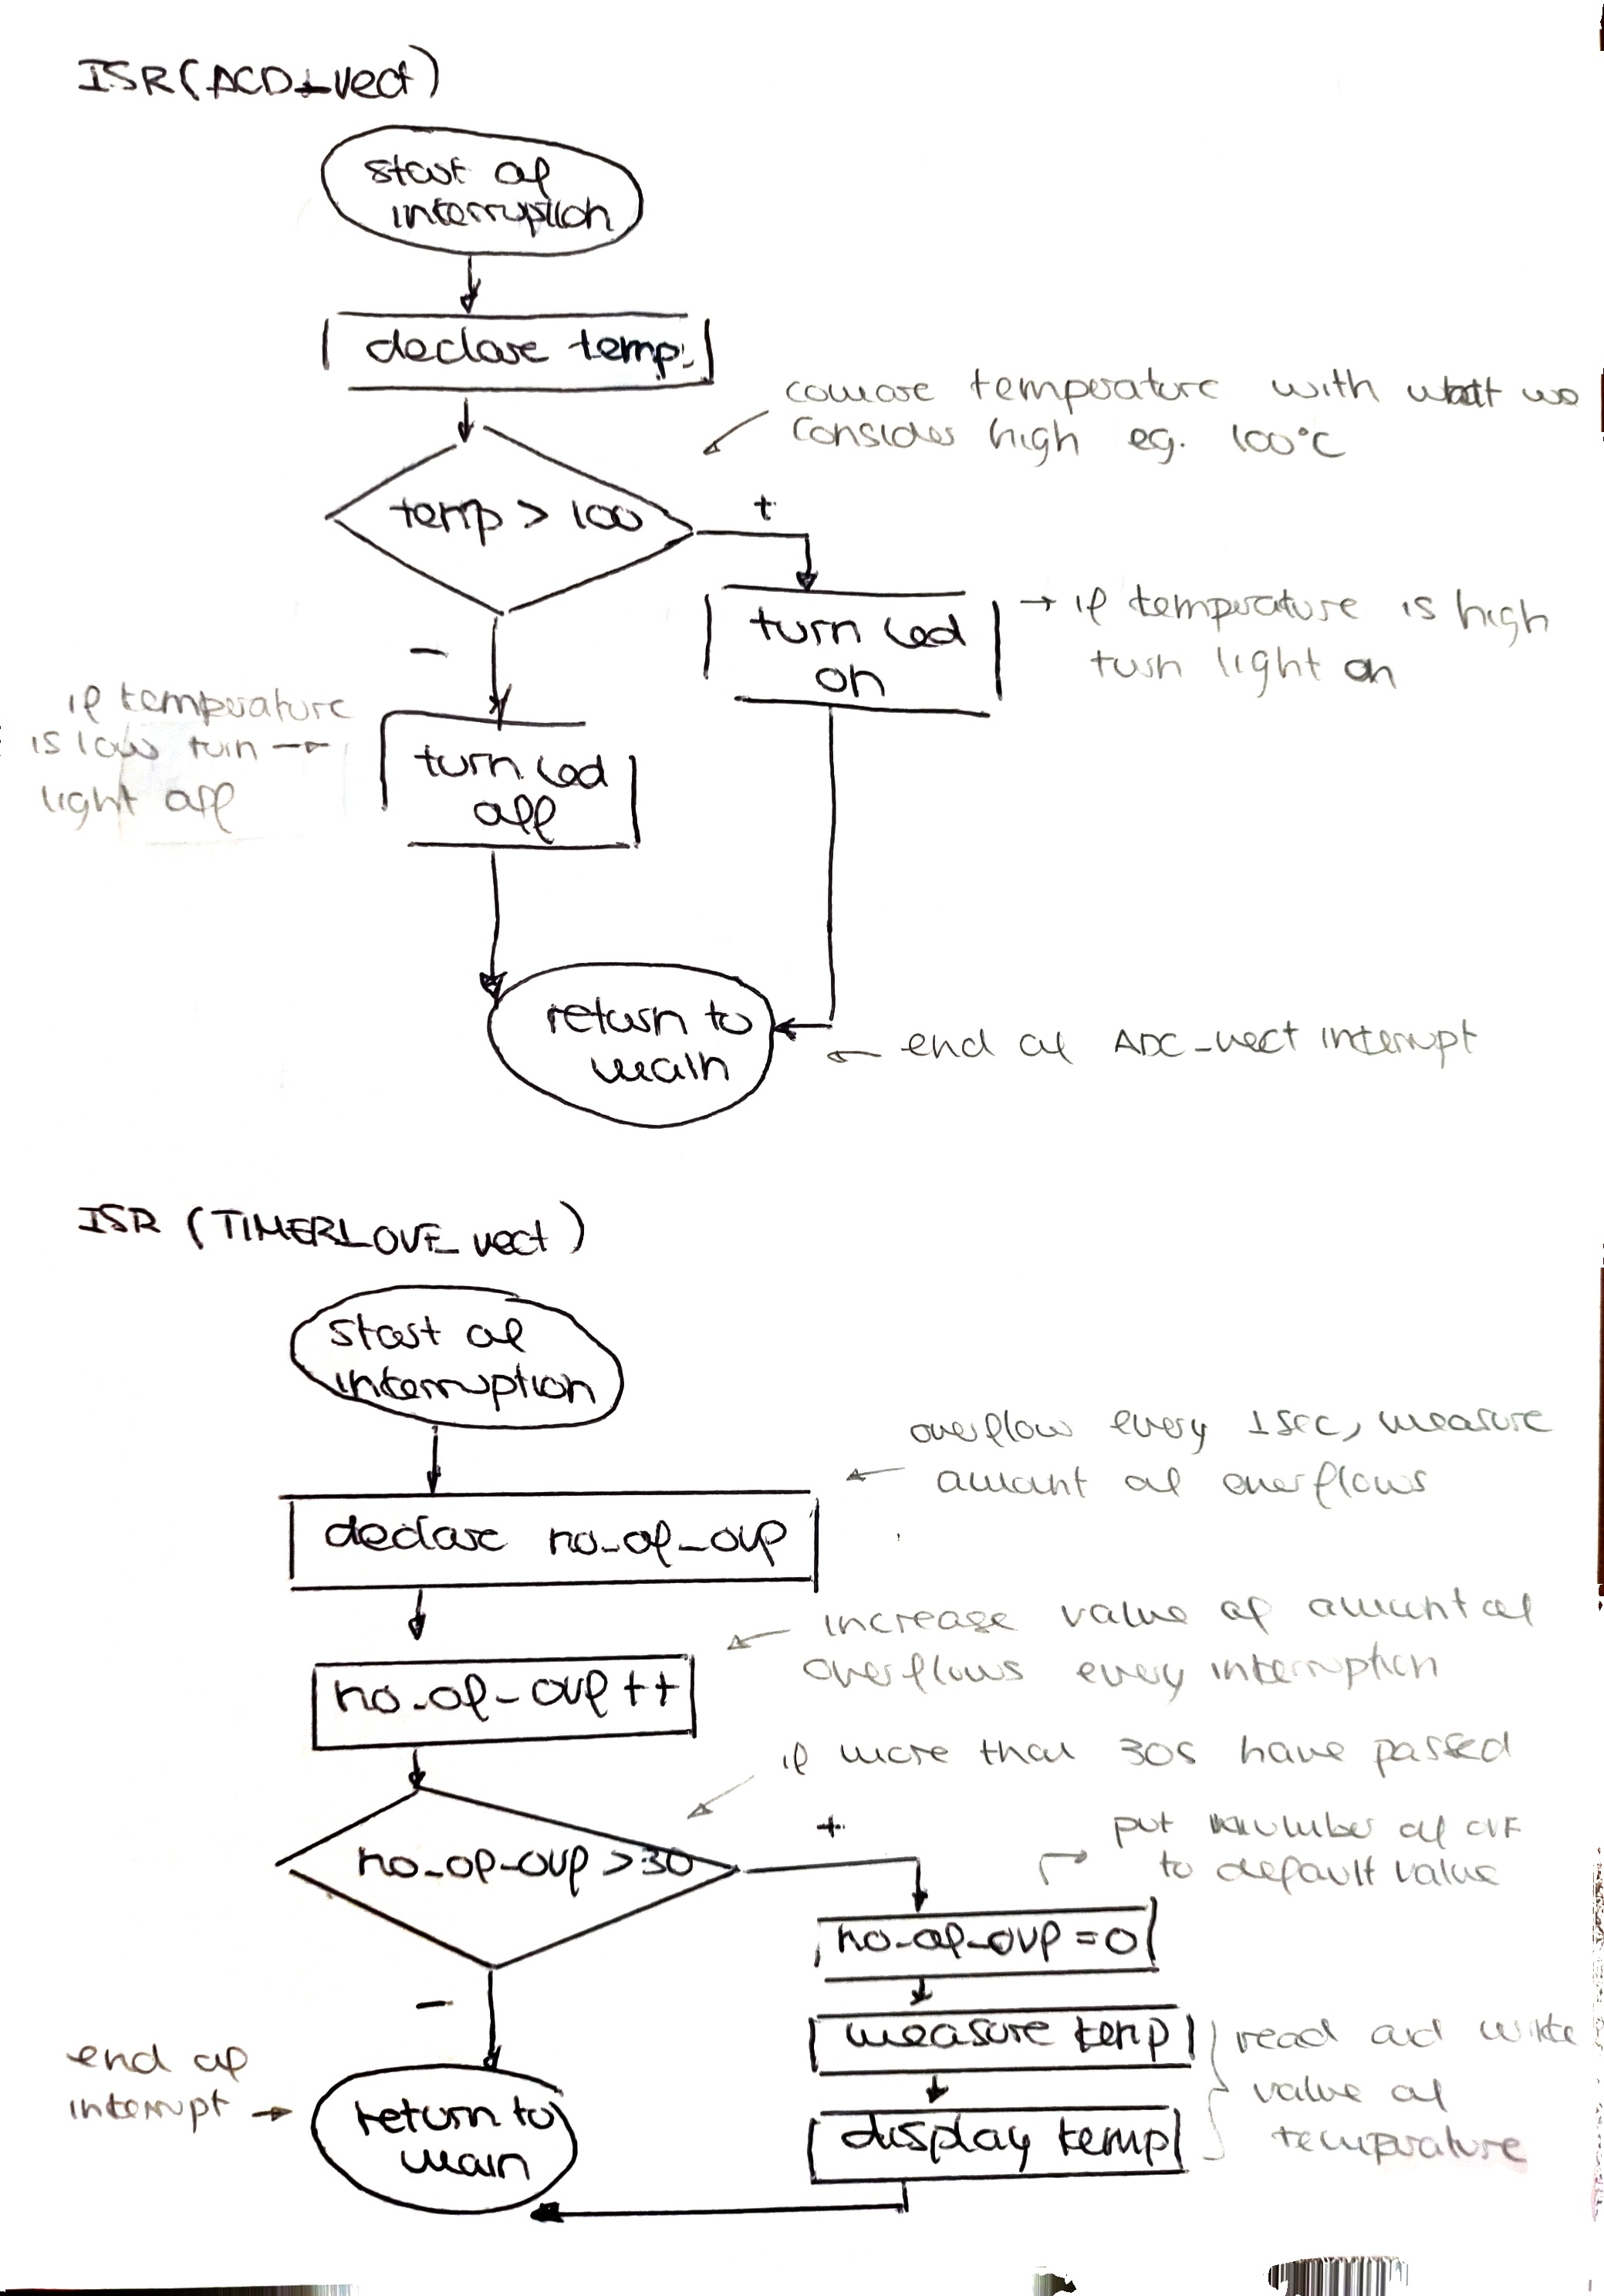 ISR(ACD_vect)
start of
interruption
declare temp.
comare temperature with what we
consider high eg. 100°C
temp > 100
+
turn led
on
→ if temperature is high
turn light on
-
if temperature
is low turn →
light off
turn led
off
return to
main
← end of ADC_vect interrupt
ISR (TIMER1_OVF_vect)
start of
interruption
overflow every 1sec, measure
← amount of overflows
declare no_of_ovf
increase value of amount of
overflows every interruption
no_of_ovf ++
if more than 30s have passed
no_of_ovf > 30
+
put number of OVF
to default value
no_of_ovf = 0
-
measure temp
read and write
value of
temperature
display temp
end of
interrupt →
return to
main